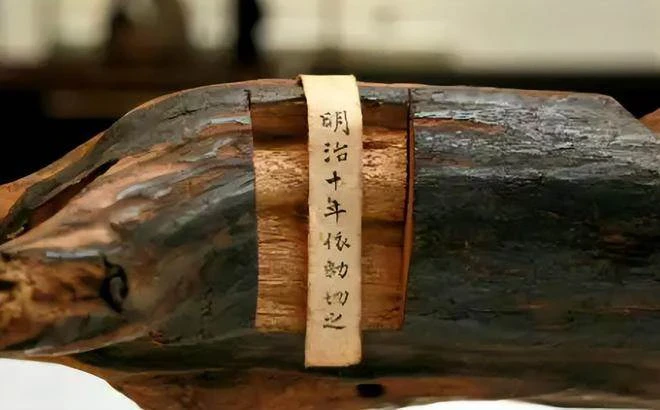 明治十年依勅切之